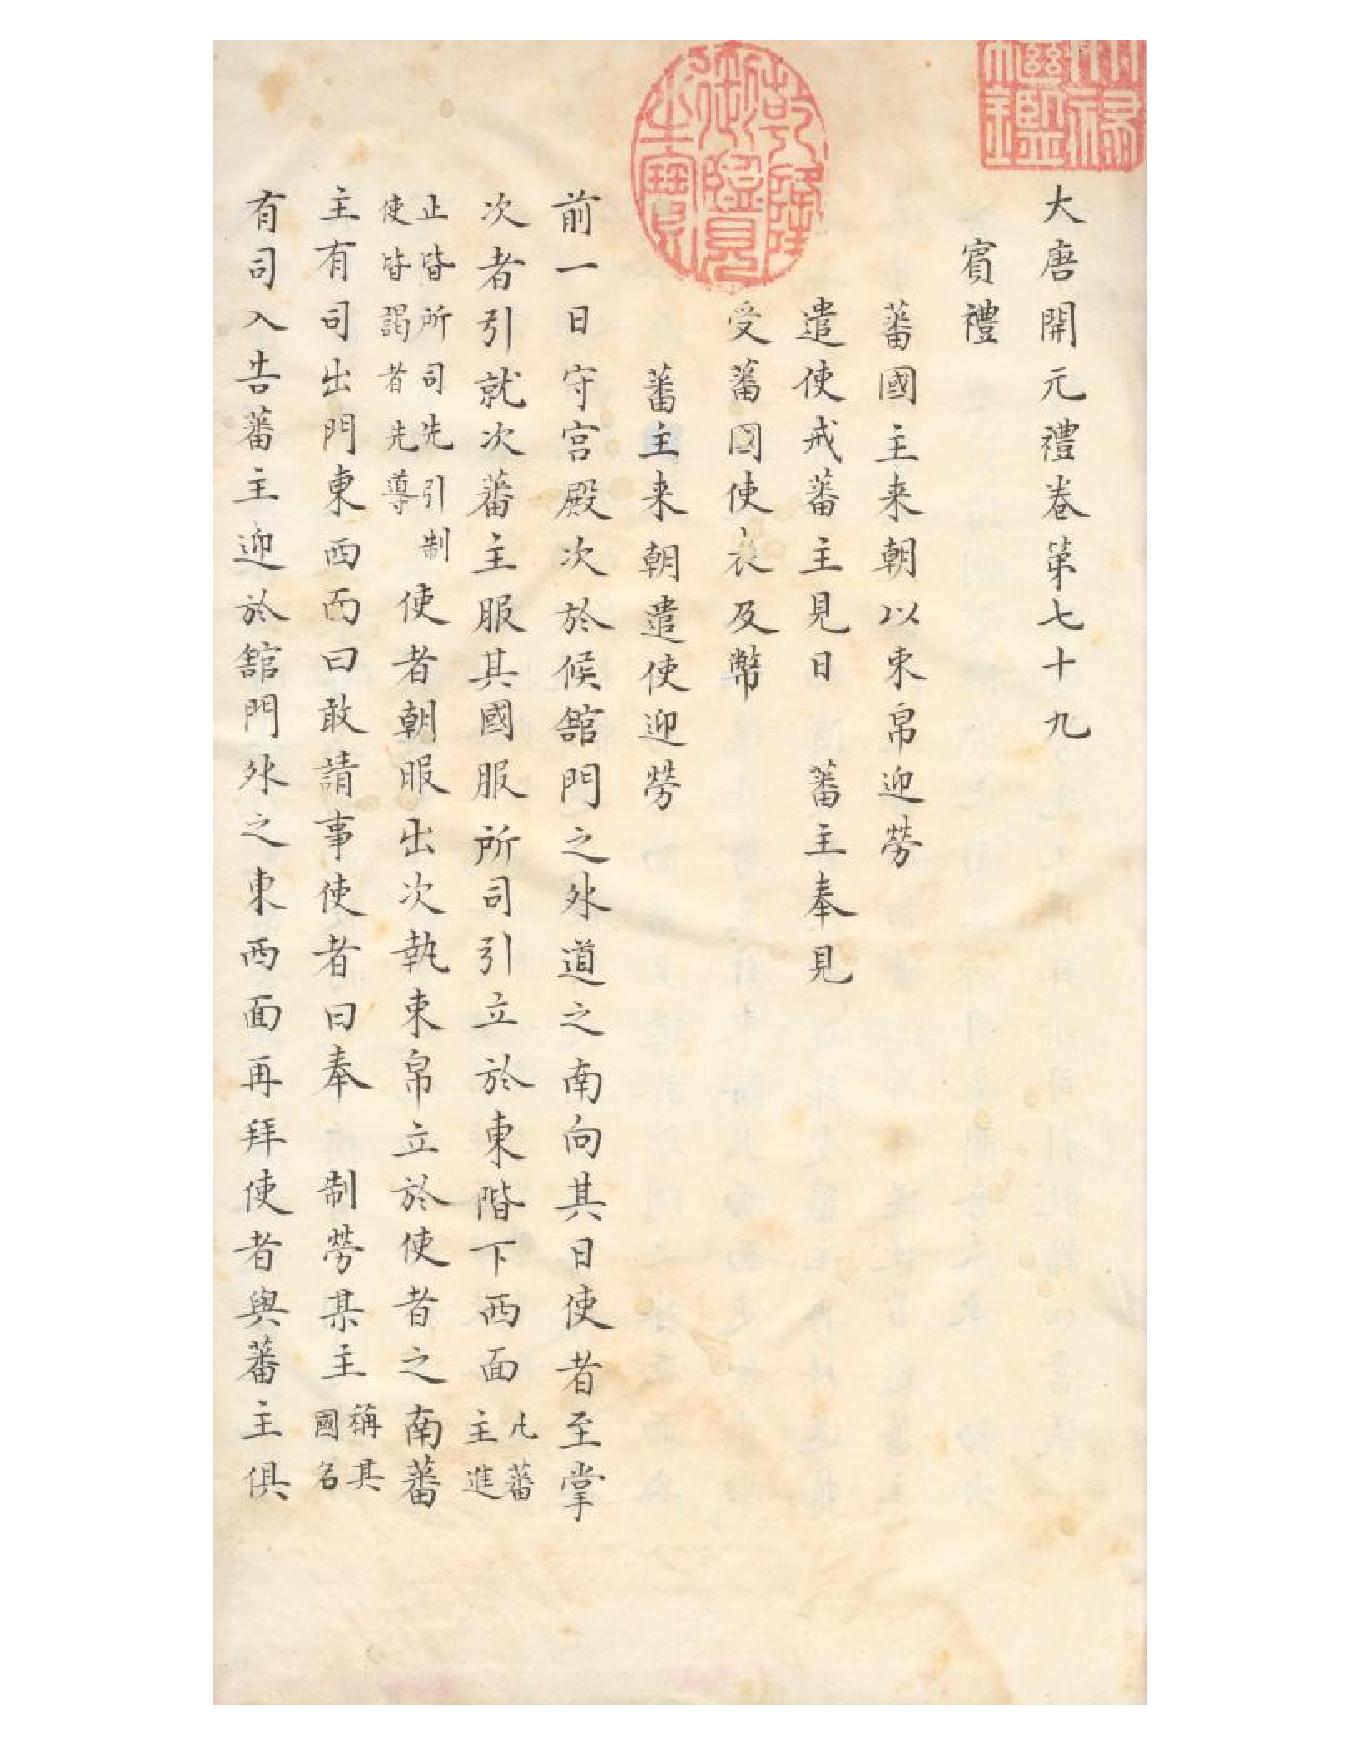 大唐開元禮卷第七十九
賓禮
蕃國主来朝以束帛迎勞
遣使戒蕃主見日　蕃主奉見
受蕃國使表及幣
蕃主来朝遣使迎勞
前一日守宫殿次於候館門之外道之南向其日使者至掌
次者引就次蕃主服其國服所司引立於東階下西面凡蕃主進
止皆所司先引制使皆謁者先導使者朝服出次執束帛立於使者之南蕃
主有司出門東西面曰敢請事使者曰奉　制勞某主稱其國名
有司入告蕃主迎於館門外之東西面再拜使者與蕃主俱
乾隆御覽之寶